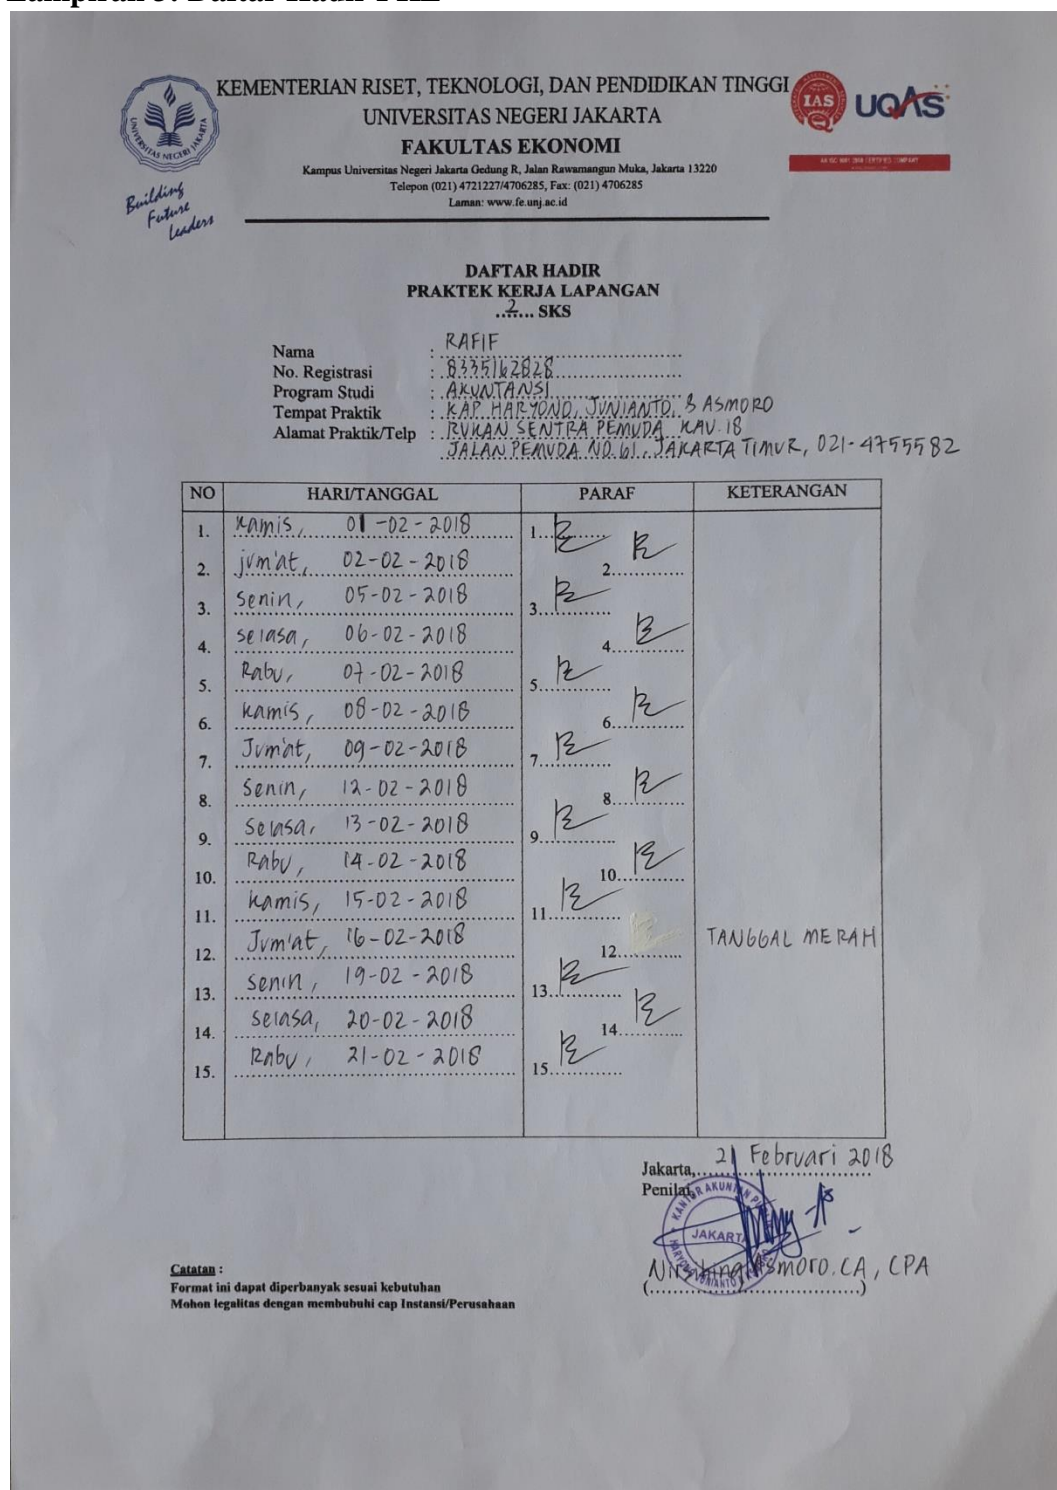 KEMENTERIAN RISET, TEKNOLOGI, DAN PENDIDIKAN TINGGI
UNIVERSITAS NEGERI JAKARTA
FAKULTAS EKONOMI
Kampus Universitas Negeri Jakarta Gedung R, Jalan Rawamangun Muka, Jakarta 13220
Telepon (021) 4721227/4706285, Fax: (021) 4706285
Laman: www.fe.unj.ac.id
UNIVERSITAS NEGERI JAKARTA
Building
Future
Leaders
IAS
UQAS
DAFTAR HADIR
PRAKTEK KERJA LAPANGAN
..2.... SKS
Nama : RAFIF
No. Registrasi : 8335162828
Program Studi : AKUNTANSI
Tempat Praktik : KAP HARYONO, JUNIANTO, & ASMORO
Alamat Praktik/Telp : RUKAN SENTRA PEMUDA KAV. 18
JALAN PEMUDA NO. 61, JAKARTA TIMUR, 021-4755582
NO HARI/TANGGAL PARAF KETERANGAN
1. Kamis, 01-02-2018 1.
2. jum'at, 02-02-2018 2.
3. Senin, 05-02-2018 3.
4. selasa, 06-02-2018 4.
5. Rabu, 07-02-2018 5.
6. Kamis, 08-02-2018 6.
7. Jum'at, 09-02-2018 7.
8. Senin, 12-02-2018 8.
9. Selasa, 13-02-2018 9.
10. Rabu, 14-02-2018 10.
11. Kamis, 15-02-2018 11.
12. Jum'at, 16-02-2018 12. TANGGAL MERAH
13. Senin, 19-02-2018 13.
14. Selasa, 20-02-2018 14.
15. Rabu, 21-02-2018 15.
Jakarta, 21 Februari 2018
Penilai,
JAKARTA
Asmoro. CA, CPA
Catatan :
Format ini dapat diperbanyak sesuai kebutuhan
Mohon legalitas dengan membubuhi cap Instansi/Perusahaan